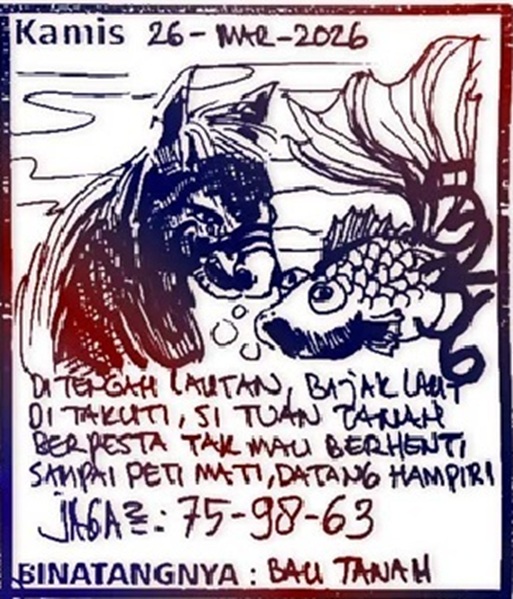 Kamis 26-MAR-2026
DI TENGAH LAUTAN, BAJAK LAUT
DI TAKUTI, SI TUAN TANAH
BERPESTA TAK MAU BERHENTI
SAMPAI PETI MATI, DATANG HAMPIRI
JAGA2:. 75-98-63
BINATANGNYA : BAU TANAH